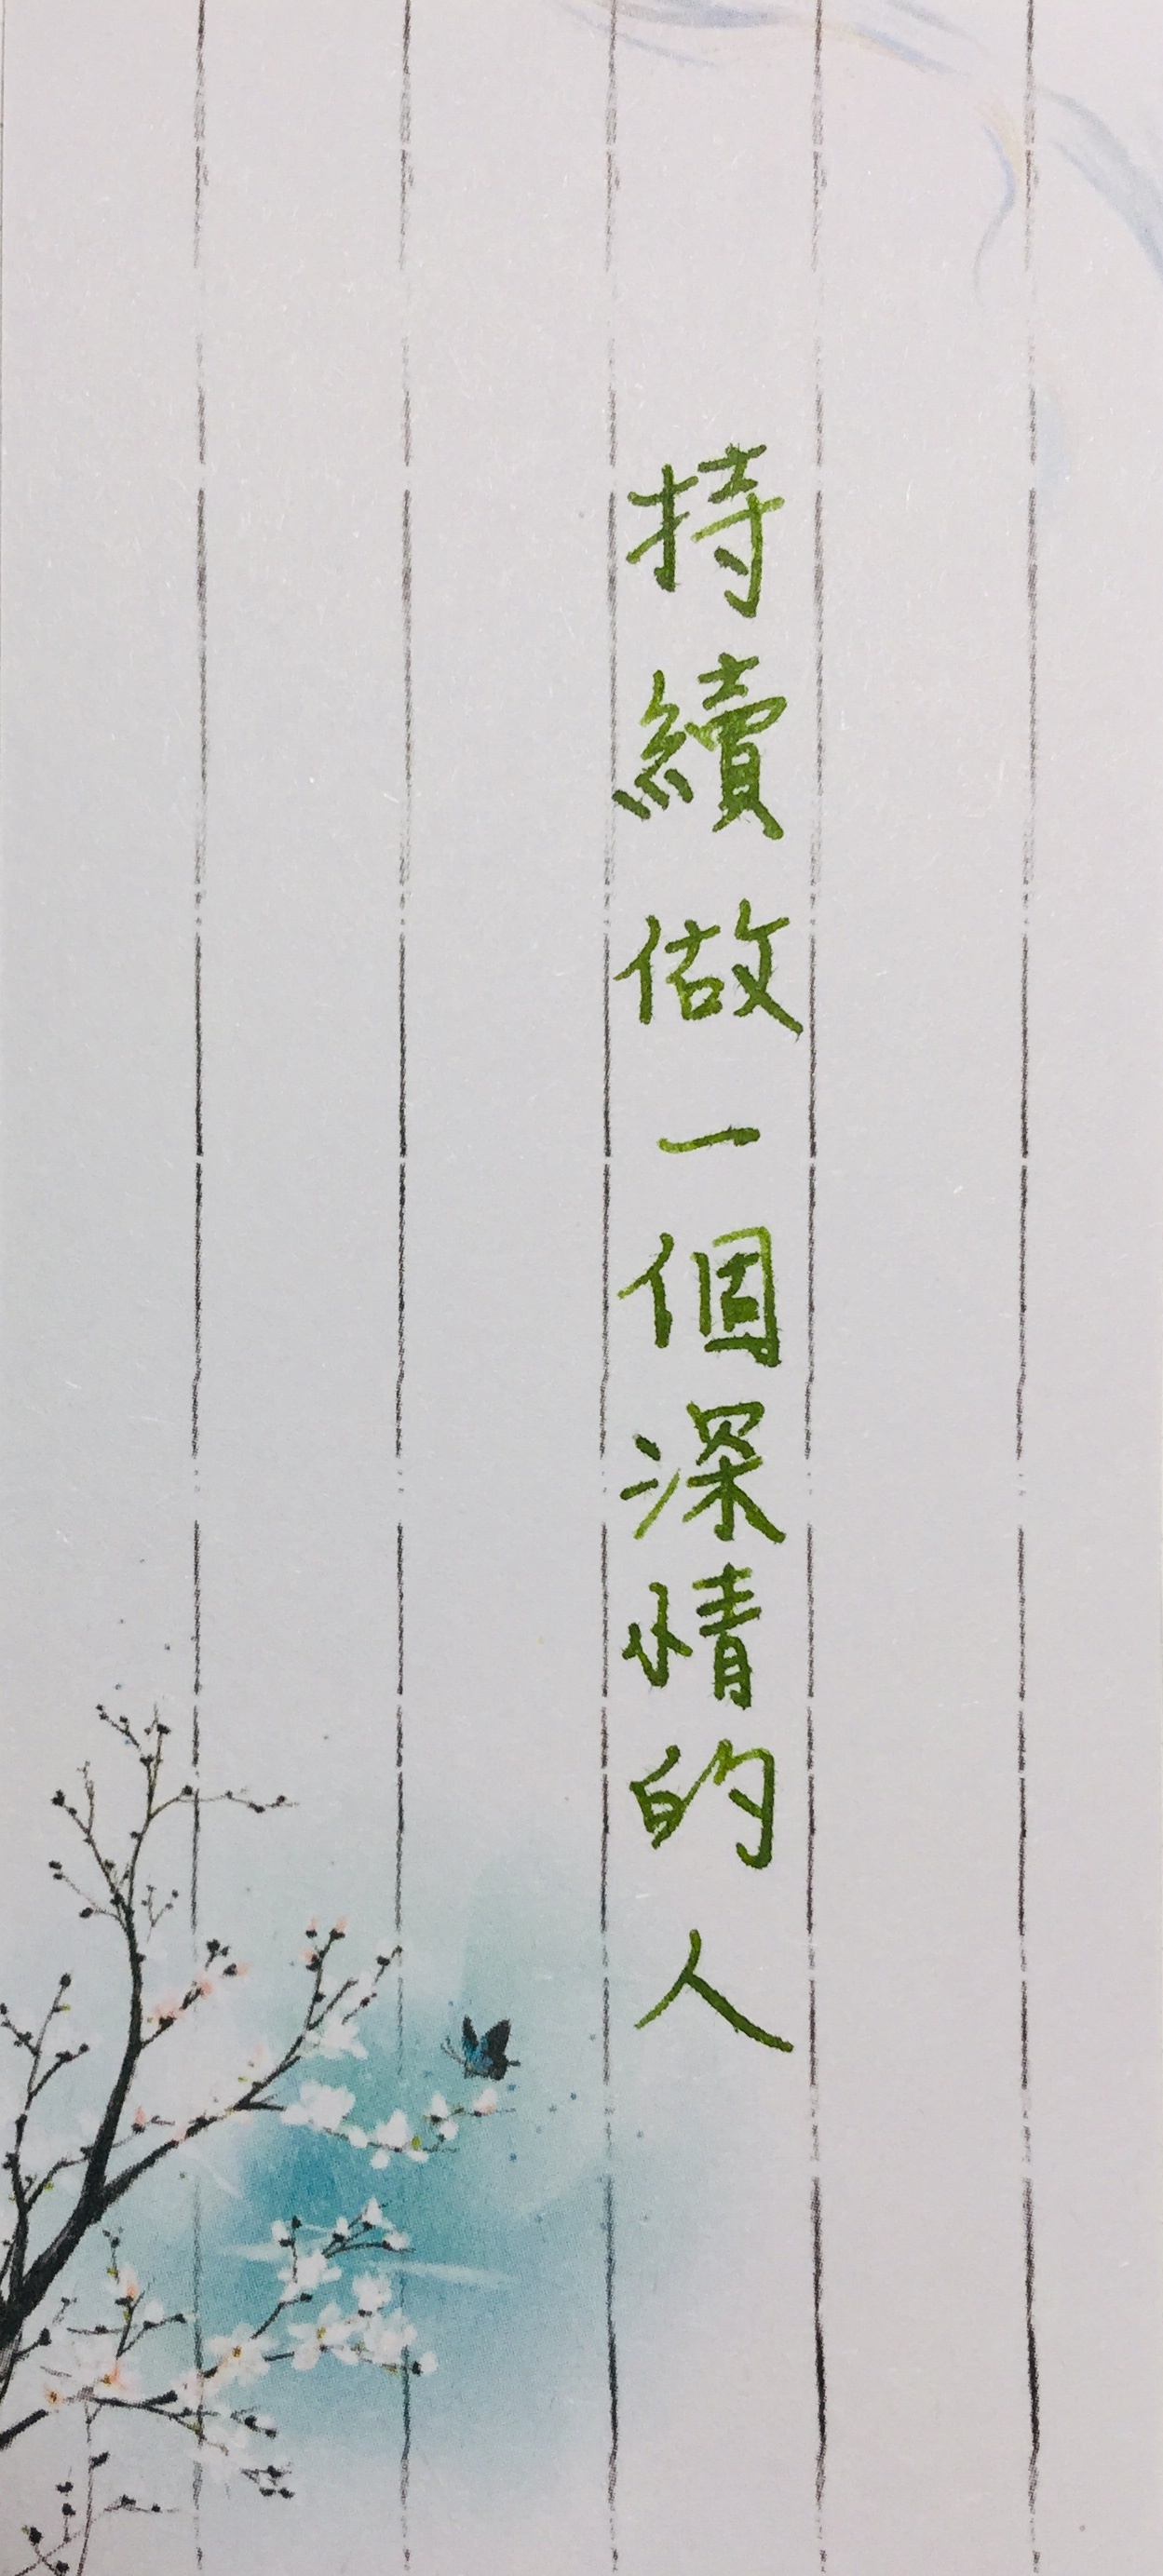 持續做一個深情的人